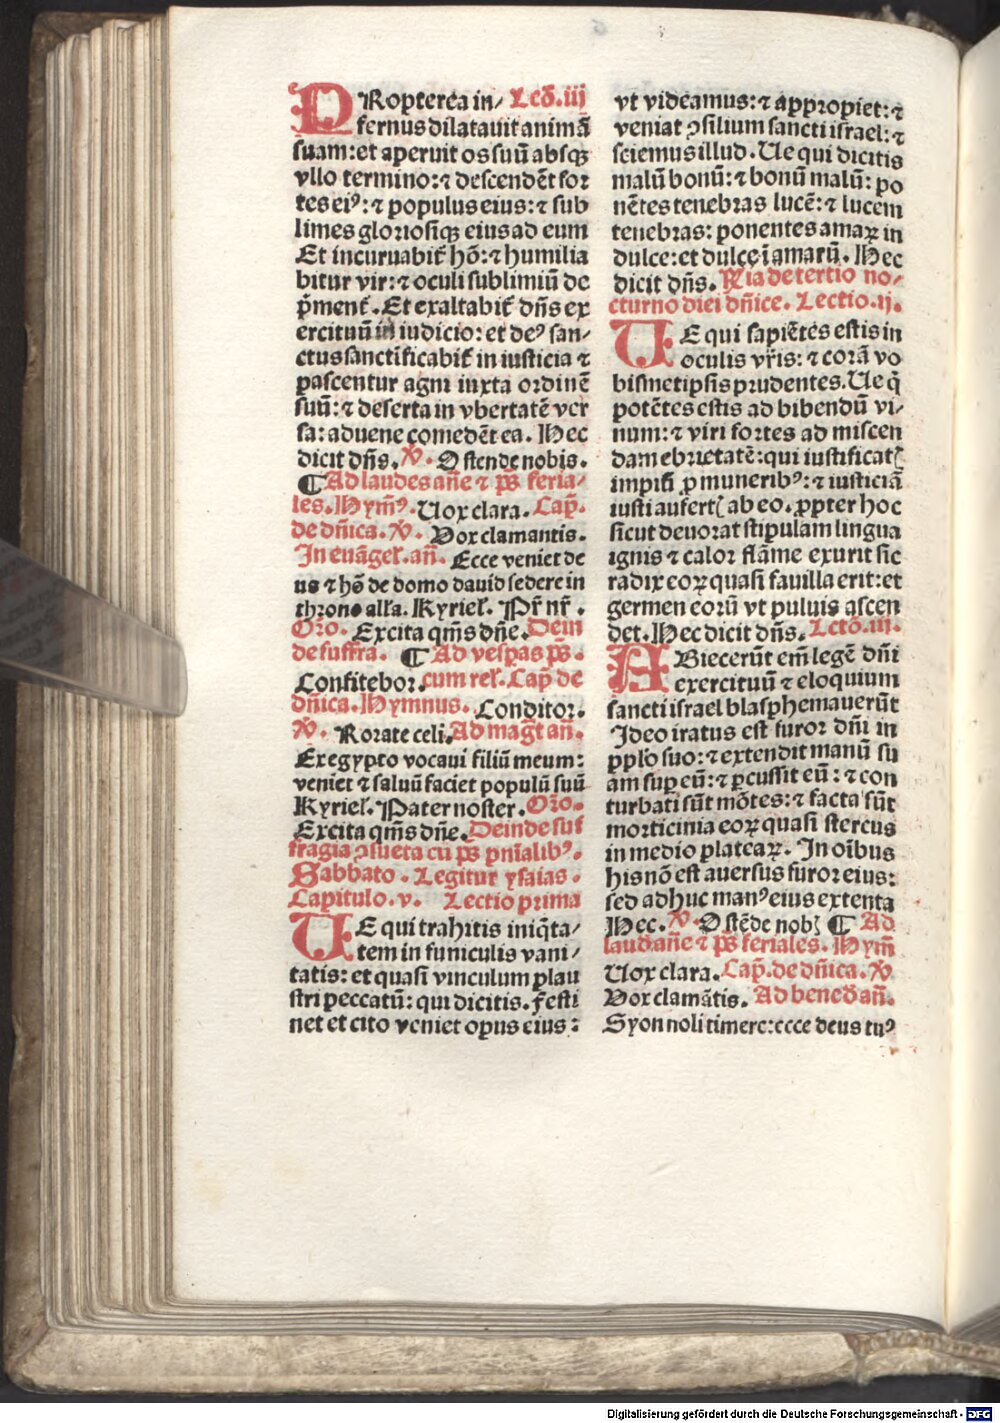 PRopterea in⸗ Lec̄. iij
fernus dilatauit animā
suam: et aperuit os suū absqꝫ
vllo termino: ⁊ descendēt for
tes eiꝰ: ⁊ populus eius: ⁊ sub
limes gloriosiqꝫ eius ad eum
Et incuruabit̄ hō: ⁊ humilia
bitur vir: ⁊ oculi sublimiū de
p̄ment̄. Et exaltabit̄ dn̄s ex
ercituū in iudicio: et deꝰ san⸗
ctus sanctificabit̄ in iusticia ⁊
pascentur agni iuxta ordinē
suū: ⁊ deserta in vbertatē ver
sa: aduene comedēt ea. Hec
dicit dn̄s. ℣. Ostende nobis.
¶ Ad laudes an̄e ⁊ ps̄ feria⸗
les. Hym̄ꝰ. Uox clara. Cap̄.
de dn̄ica. ℣. Vox clamantis.
In euāgel̄. an̄. Ecce veniet de
us ⁊ hō de domo dauid sedere in
throno all̄a. Kyriel̄. Pr̄ nr̄.
Or̄o. Excita qm̄s dn̄e. Dein
de suffra. ¶ Ad vesp̄as ps̄.
Confitebor. cum rel̄. Cap̄ de
dn̄ica. Hymnus. Conditor.
℣. Rorate celi. Ad magt̄ an̄.
Ex egypto vocaui filiū meum:
veniet ⁊ saluū faciet populū suū
Kyriel̄. Pater noster. Or̄o.
Excita qm̄s dn̄e. Deinde suf
fragia ꝯsueta cū ps̄ pn̄ialibꝰ.
Sabbato. Legitur ysaias.
Capitulo. v. Lectio prima
UE qui trahitis iniq̄ta⸗
tem in funiculis vani⸗
tatis: et quasi vinculum plau
stri peccatū: qui dicitis. festi
net et cito veniet opus eius:
vt videamus: ⁊ appropiet: ⁊
veniat ꝯsilium sancti israel: ⁊
sciemus illud. Ue qui dicitis
malū bonū: ⁊ bonū malū: po
nētes tenebras lucē: ⁊ lucem
tenebras: ponentes amaꝝ in
dulce: et dulce ī amarū. Hec
dicit dn̄s. R̄ia de tertio no⸗
cturno diei dn̄ice. Lectio. ij.
UE qui sapiētes estis in
oculis vr̄is: ⁊ corā vo
bismetipsis prudentes. Ue q̄
potētes estis ad bibendū vi⸗
num: ⁊ viri fortes ad miscen
dam ebrietatē: qui iustificatꝭ
impiū ꝓ muneribꝰ: ⁊ iusticiā
iusti aufertꝭ ab eo. ꝓpter hoc
sicut deuorat stipulam lingua
ignis ⁊ calor flāme exurit sic
radix eoꝝ quasi fauilla erit: et
germen eorū vt puluis ascen
det. Hec dicit dn̄s. Lctō. iij.
ABiecerūt em̄ legē dn̄i
exercituū ⁊ eloquium
sancti israel blasphemauerūt
Ideo iratus est furor dn̄i in
pp̄lo suo: ⁊ extendit manū su
am sup̄ eū: ⁊ ꝑcussit eū: ⁊ con
turbati sūt mōtes: ⁊ facta sūt
morticinia eoꝝ quasi stercus
in medio plateaꝝ. In oībus
his nō est auersus furor eius:
sed adhuc manꝰ eius extenta
Hec. ℣. Ostēde nobꝭ ¶ Ad
laud an̄e ⁊ ps̄ feriales. Hym̄
Uox clara. Cap̄. de dn̄ica. ℣
Vox clamātis. Ad bened̄ an̄.
Syon noli timere: ecce deus tuꝰ
Digitalisierung gefördert durch die Deutsche Forschungsgemeinschaft - DFG